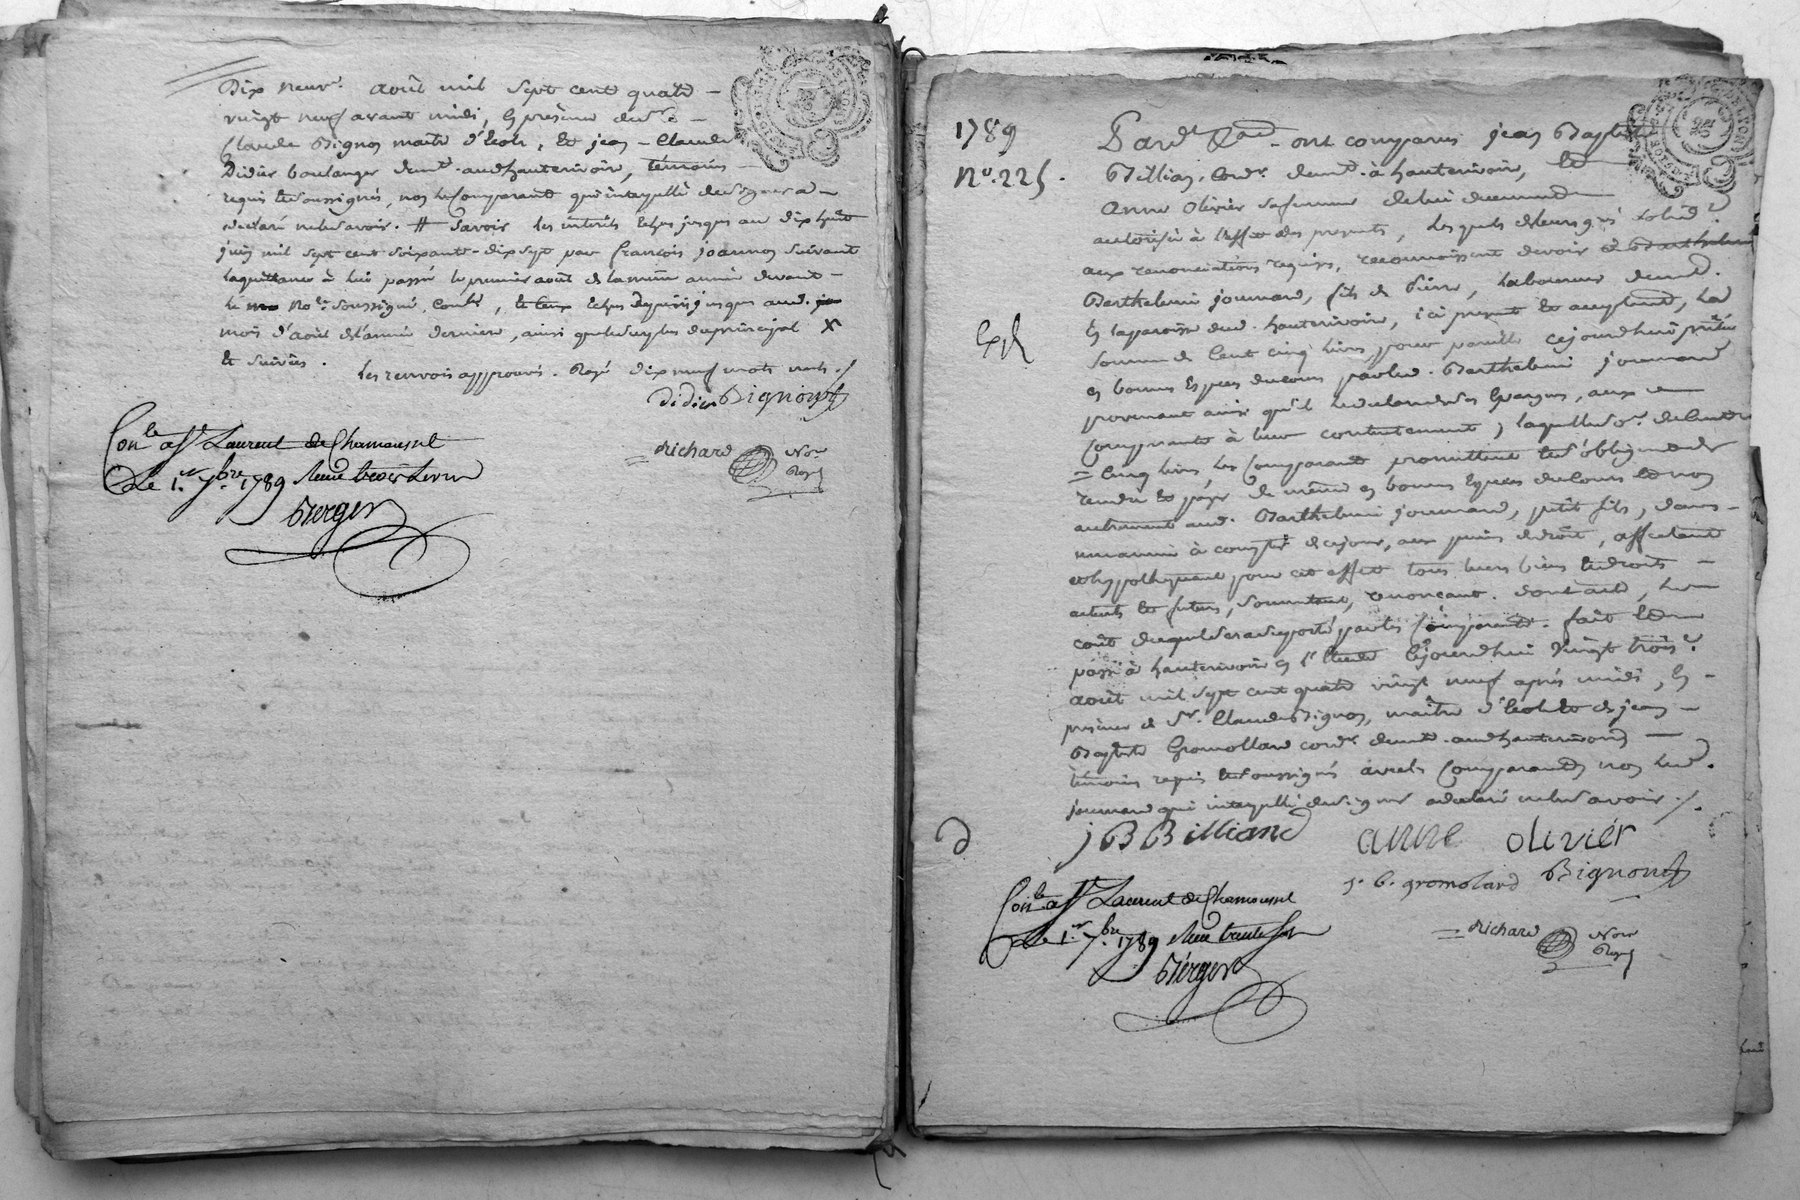 Dix neuf. août mil sept cent quatre
vingt neuf avant midi, En présence du Sr.
Claude Bignon maitre d'Ecole, Et jean - Claude
Didier boulanger demt. aud hauterivoire, témoins
requis Et soussignés, non le Comparant qui interpellé de signer a
déclaré ne le savoir. # Savoir les intérêts Echus jusques au dix huit
juin mil sept cent soixante-dix sept par françois joannon suivant
la quittance à lui passée le premier août de la même année devant
le Nore. Soussigné, Contlé, Et Ceux Echus depuis jusques aud.
mois d'août de l'année dernière, ainsi que du principal X
Et suivies.
les renvois approuvés. Rayé dix neuf mots nuls ./.
Didier Bignon
Conlé a St Laurent de Chamousset
Le 1.er 7bre. 1789 Reçu
Berger
Richard Nore
Royal
1789
No. 225.
Pard. ont comparus jean Baptiste
Billian, Cordr. demt. à hauterivoire, Et
Anne Olivier sa femme de lui duement
autorisée à l'effet des presentes, lesquels de leurs gré solidt.
aux renonciations requises, reconnoissent devoir Barthelemi
Barthelemi joumard, fils de Pierre, laboureur demt.
En la paroisse dud. hauterivoire, ici present Et acceptant, La
Exp
somme de Cent cinq livres, pour pareille cejourdhui prêtée
en bonnes Especes du cours par led. Barthelemi joumard
provenant ainsi qu'il le déclare de ses Epargnes, aux
Comparants à leur contentement, laquelle se. de Cent
Cinq livres les Comparants promettent Et s'obligent de
rendre Et payer de même en bonnes Especes du Cours Et non
autrement aud. Barthelemi joumard, petit fils, dans
une année à compter de ce jour, aux peines de droit, affectant
et hypothequant pour cet effet tous leurs biens Et droits
actuels Et futurs, soumettant, renonçant. Dont acte, le
coût duquel sera supporté par les Comparants. fait Et
passé à hauterivoire en l'Etude Cejourdhui Vingt trois.
août mil sept cent quatre vingt neuf après midi, En
présence de Sr. Claude Bignon, maître d'Ecole Et de jean
Baptiste Gromollard cordr. demt. aud hauterivoire
témoins requis Et soussignés avec les Comparants non led.
joumard qui interpellé de signer a déclaré ne le savoir ./.
j B Billiand anne olivier
j. b. gromolard Bignon
Conlé a St Laurent de Chamousset
Le 1.er 7.bre 1789 Reçu trente sols
Berger
Richard Nore
Royal